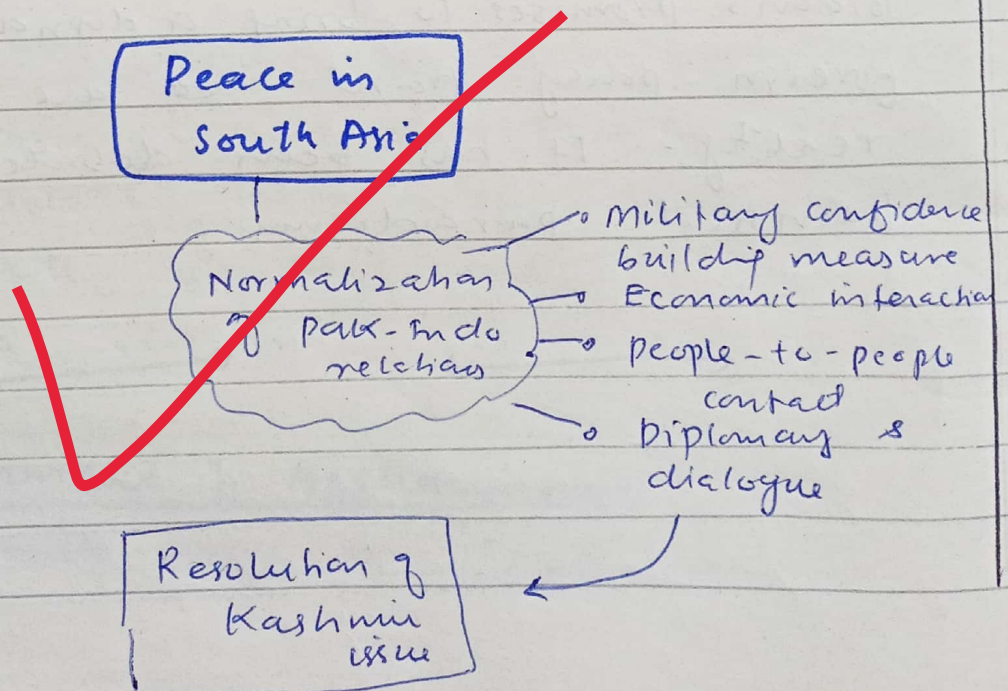 Peace in
South Asia
Normalization
of Pak-Indo
relations
Military confidence
building measure
Economic interaction
people-to-people
contact
Diplomacy &
dialogue
Resolution of
Kashmir
issue